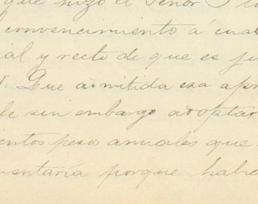 que hizo el Señor
convencimiento á cual
ial y recto de que es ju
Que admitida esa apro
de sin embargo adoptar
ientos pesos anuales que
mentaría porque habie